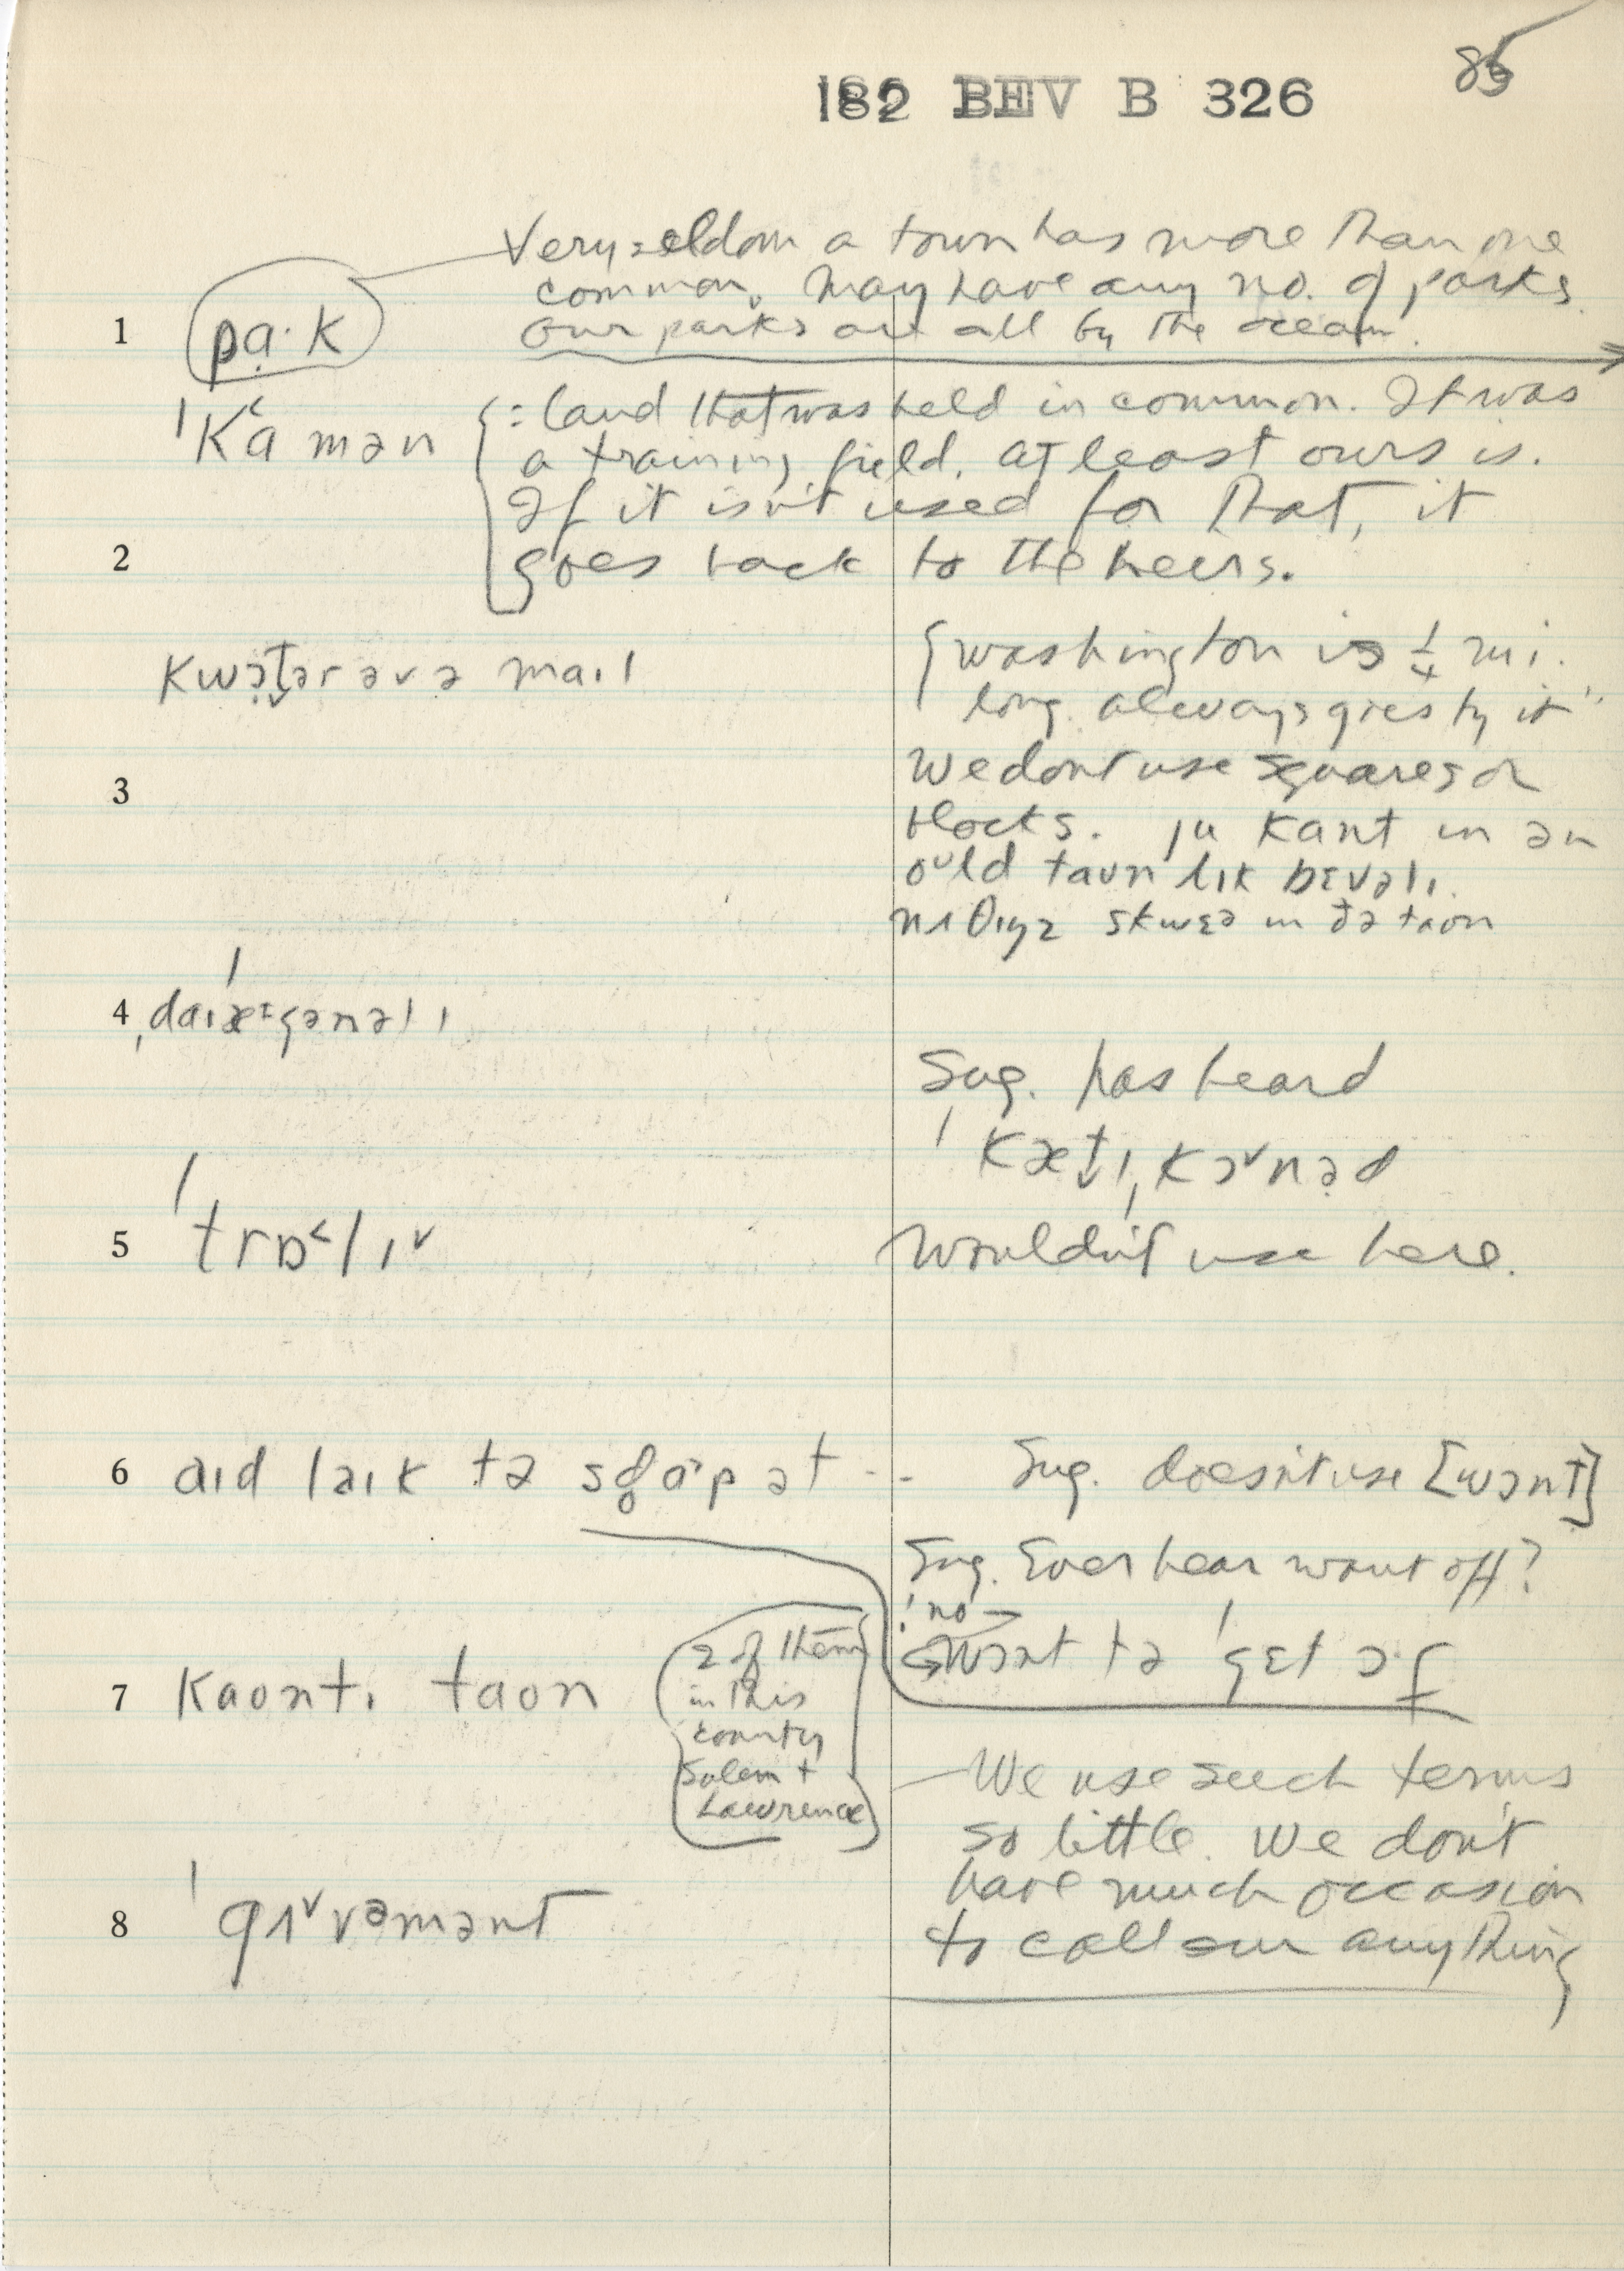 85
182 BEV B 326
Very seldom a town has more than one
common. May have any no. of parks
1 pa·k our parks are all by the ocean.
ˈka˂mən {: land that was held in common. It was
a training field. at least ours is.
If it isn't used for that, it
2 goes back to the heirs.
kwət̬ərəvə maɪl {washington is ¼ mi.
long. always goes by it"
We dont use squares or
3 blocks. ju kant in ən
oᴜld taʊn lɪk bɛvəlɪ.
skwɛə in ðə taon
4 ˌdaɪˈægənəlɪ
Sug. has heard
ˈkæt̬ɪˌkɔ˅nəd
5 ˈtrɒ˂lɪ˅ Wouldn't use here.
6 aɪd laɪk tə stɑp ət -- Sug. doesn't use [wɔnt]
Sug. Ever hear want off?
! no →
wɔnt tə ˈgɛt ɔ·f
2 of them
in this
county
Salem +
Lawrence
7 kaontɪ taon
We use such terms
so little. We don't
have much occasion
8 ˈgʌ˅vəmənt to call em anything